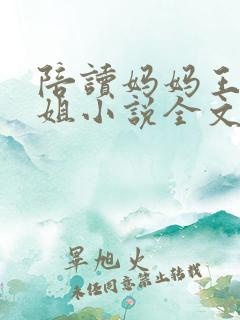 陪讀妈妈王
姐小说全文
旱旭火
未经同意禁止转载